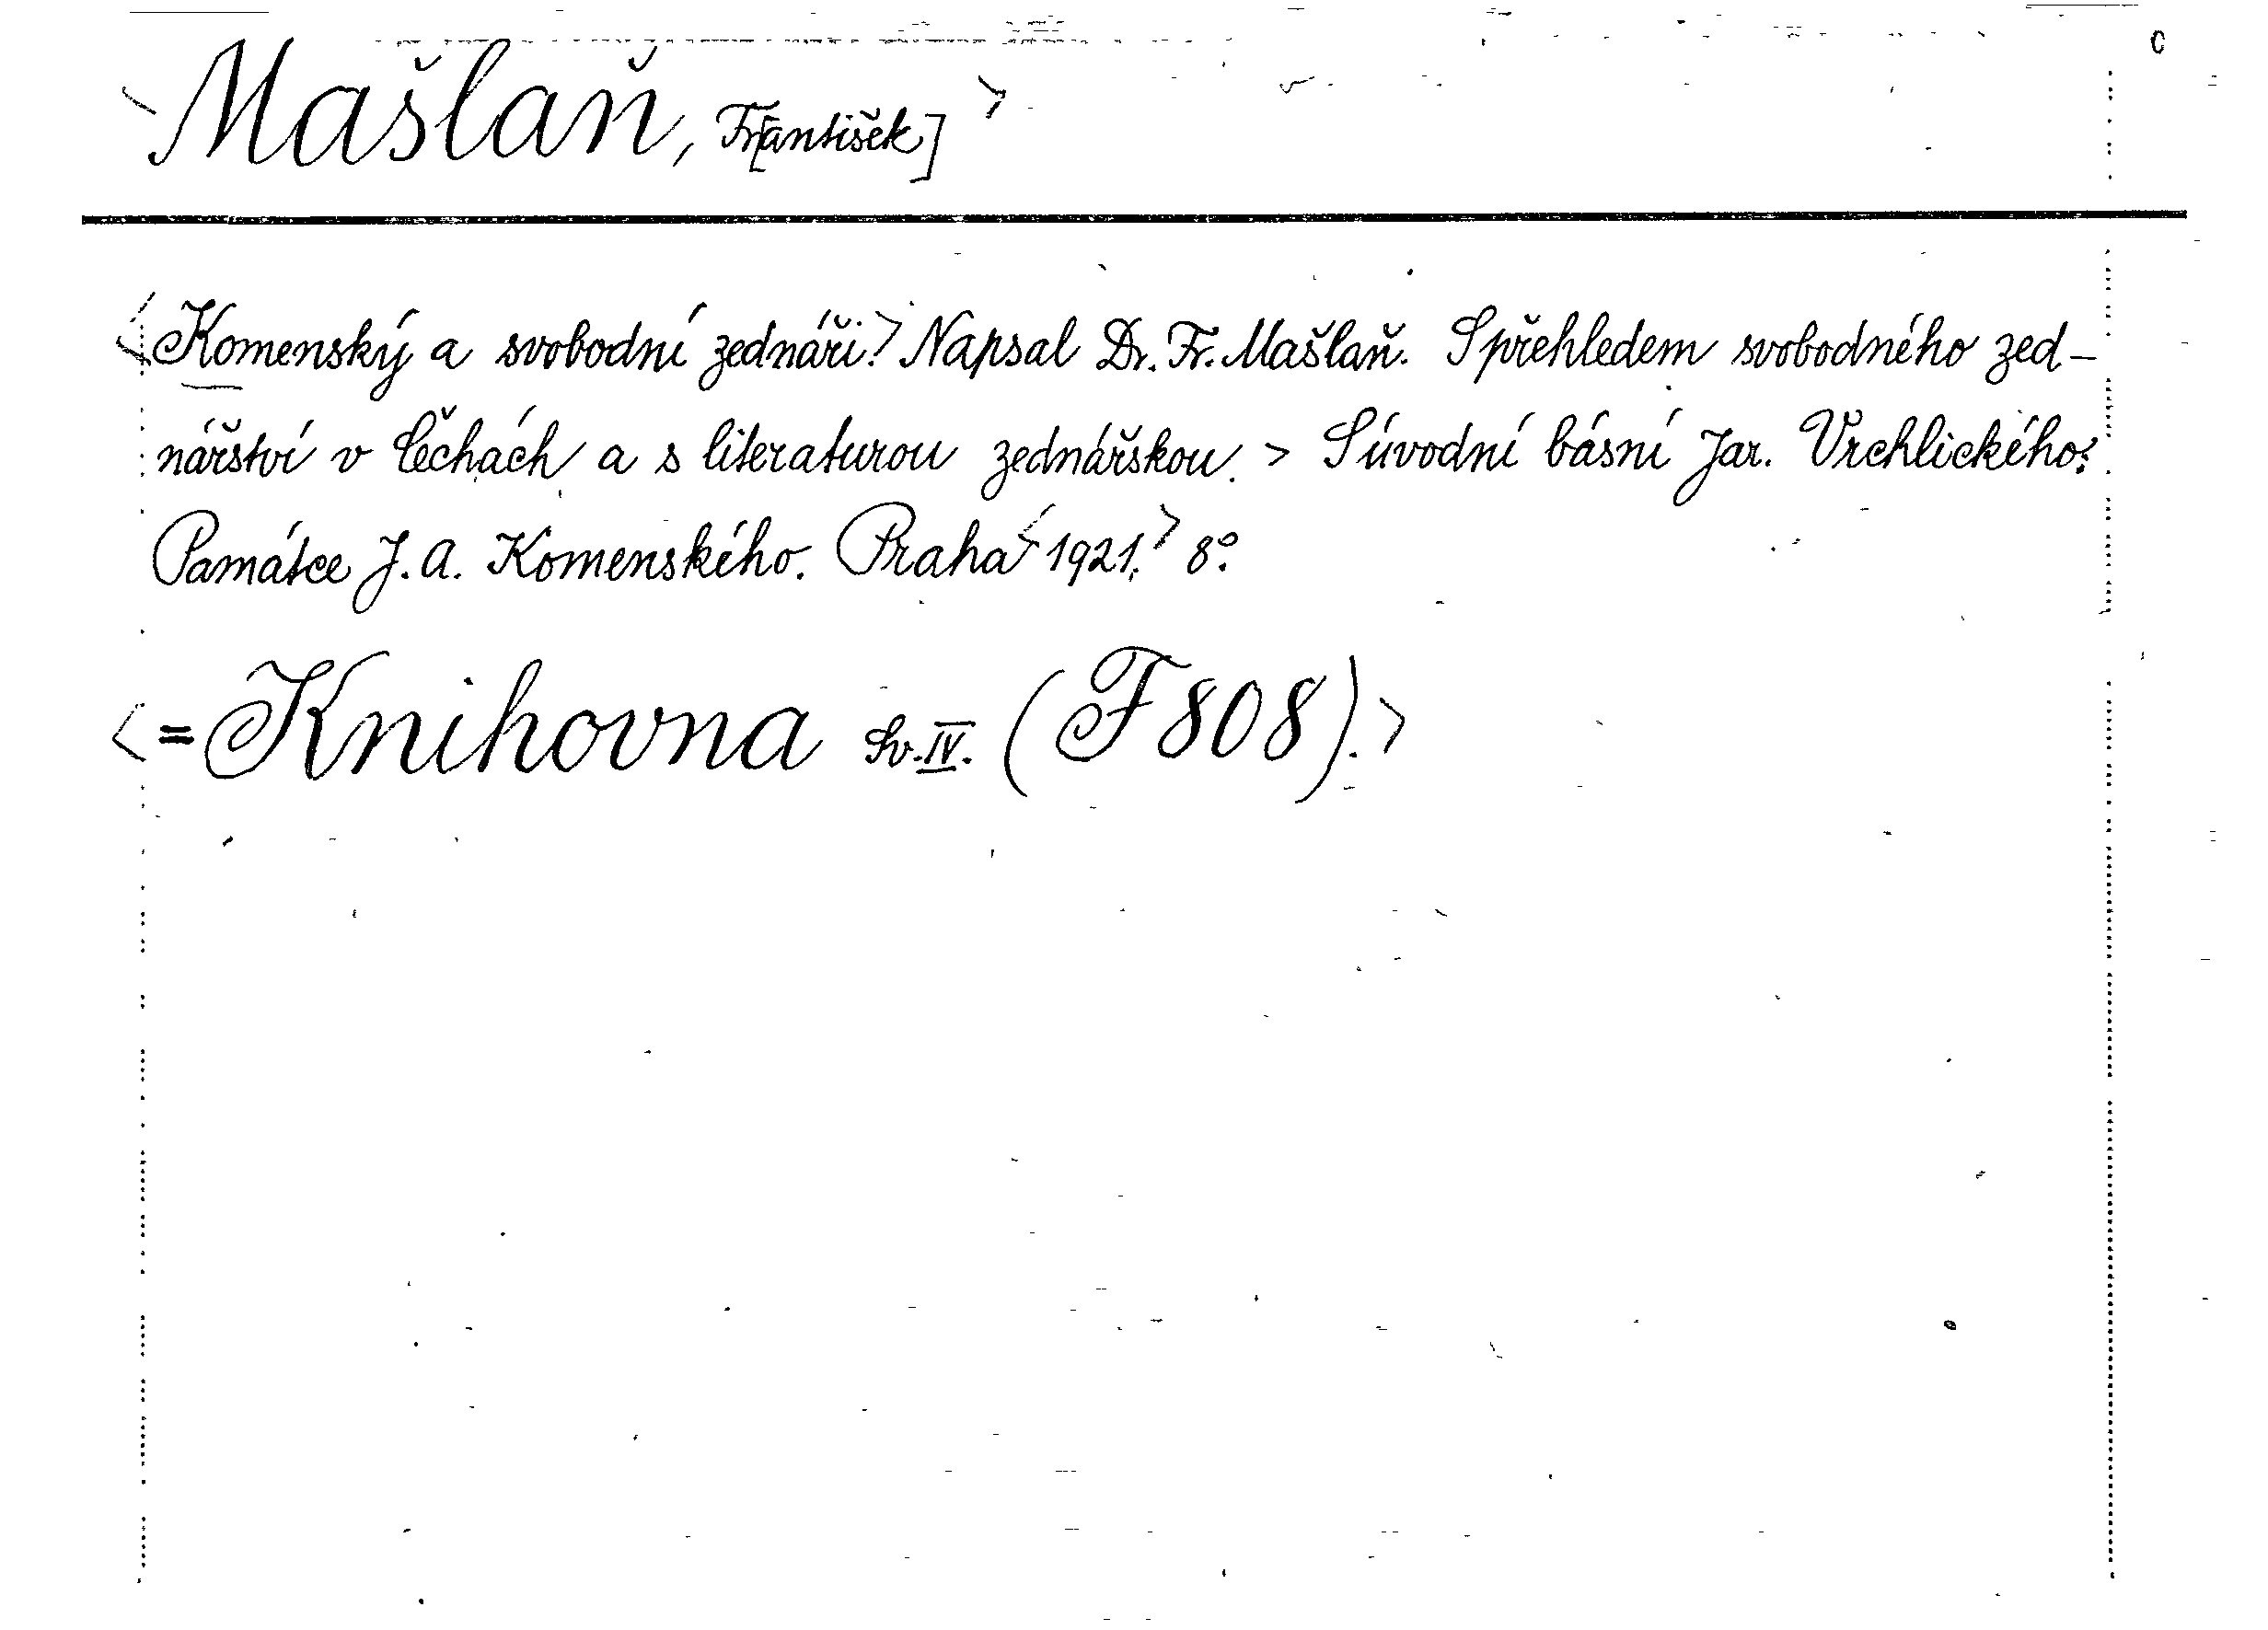 <Mašlaň, Fr[antišek]>
c
<Komenský a svobodní zednáři.> Napsal Dr. Fr. Mašlaň. S přehledem svobodného zed-
nářství v Čechách a s literaturou zednářskou. > S úvodní básní Jar. Vrchlického:
Památce J. A. Komenského. Praha <1921.> 8°.
<= Knihovna Sv. IV. (F 808).>